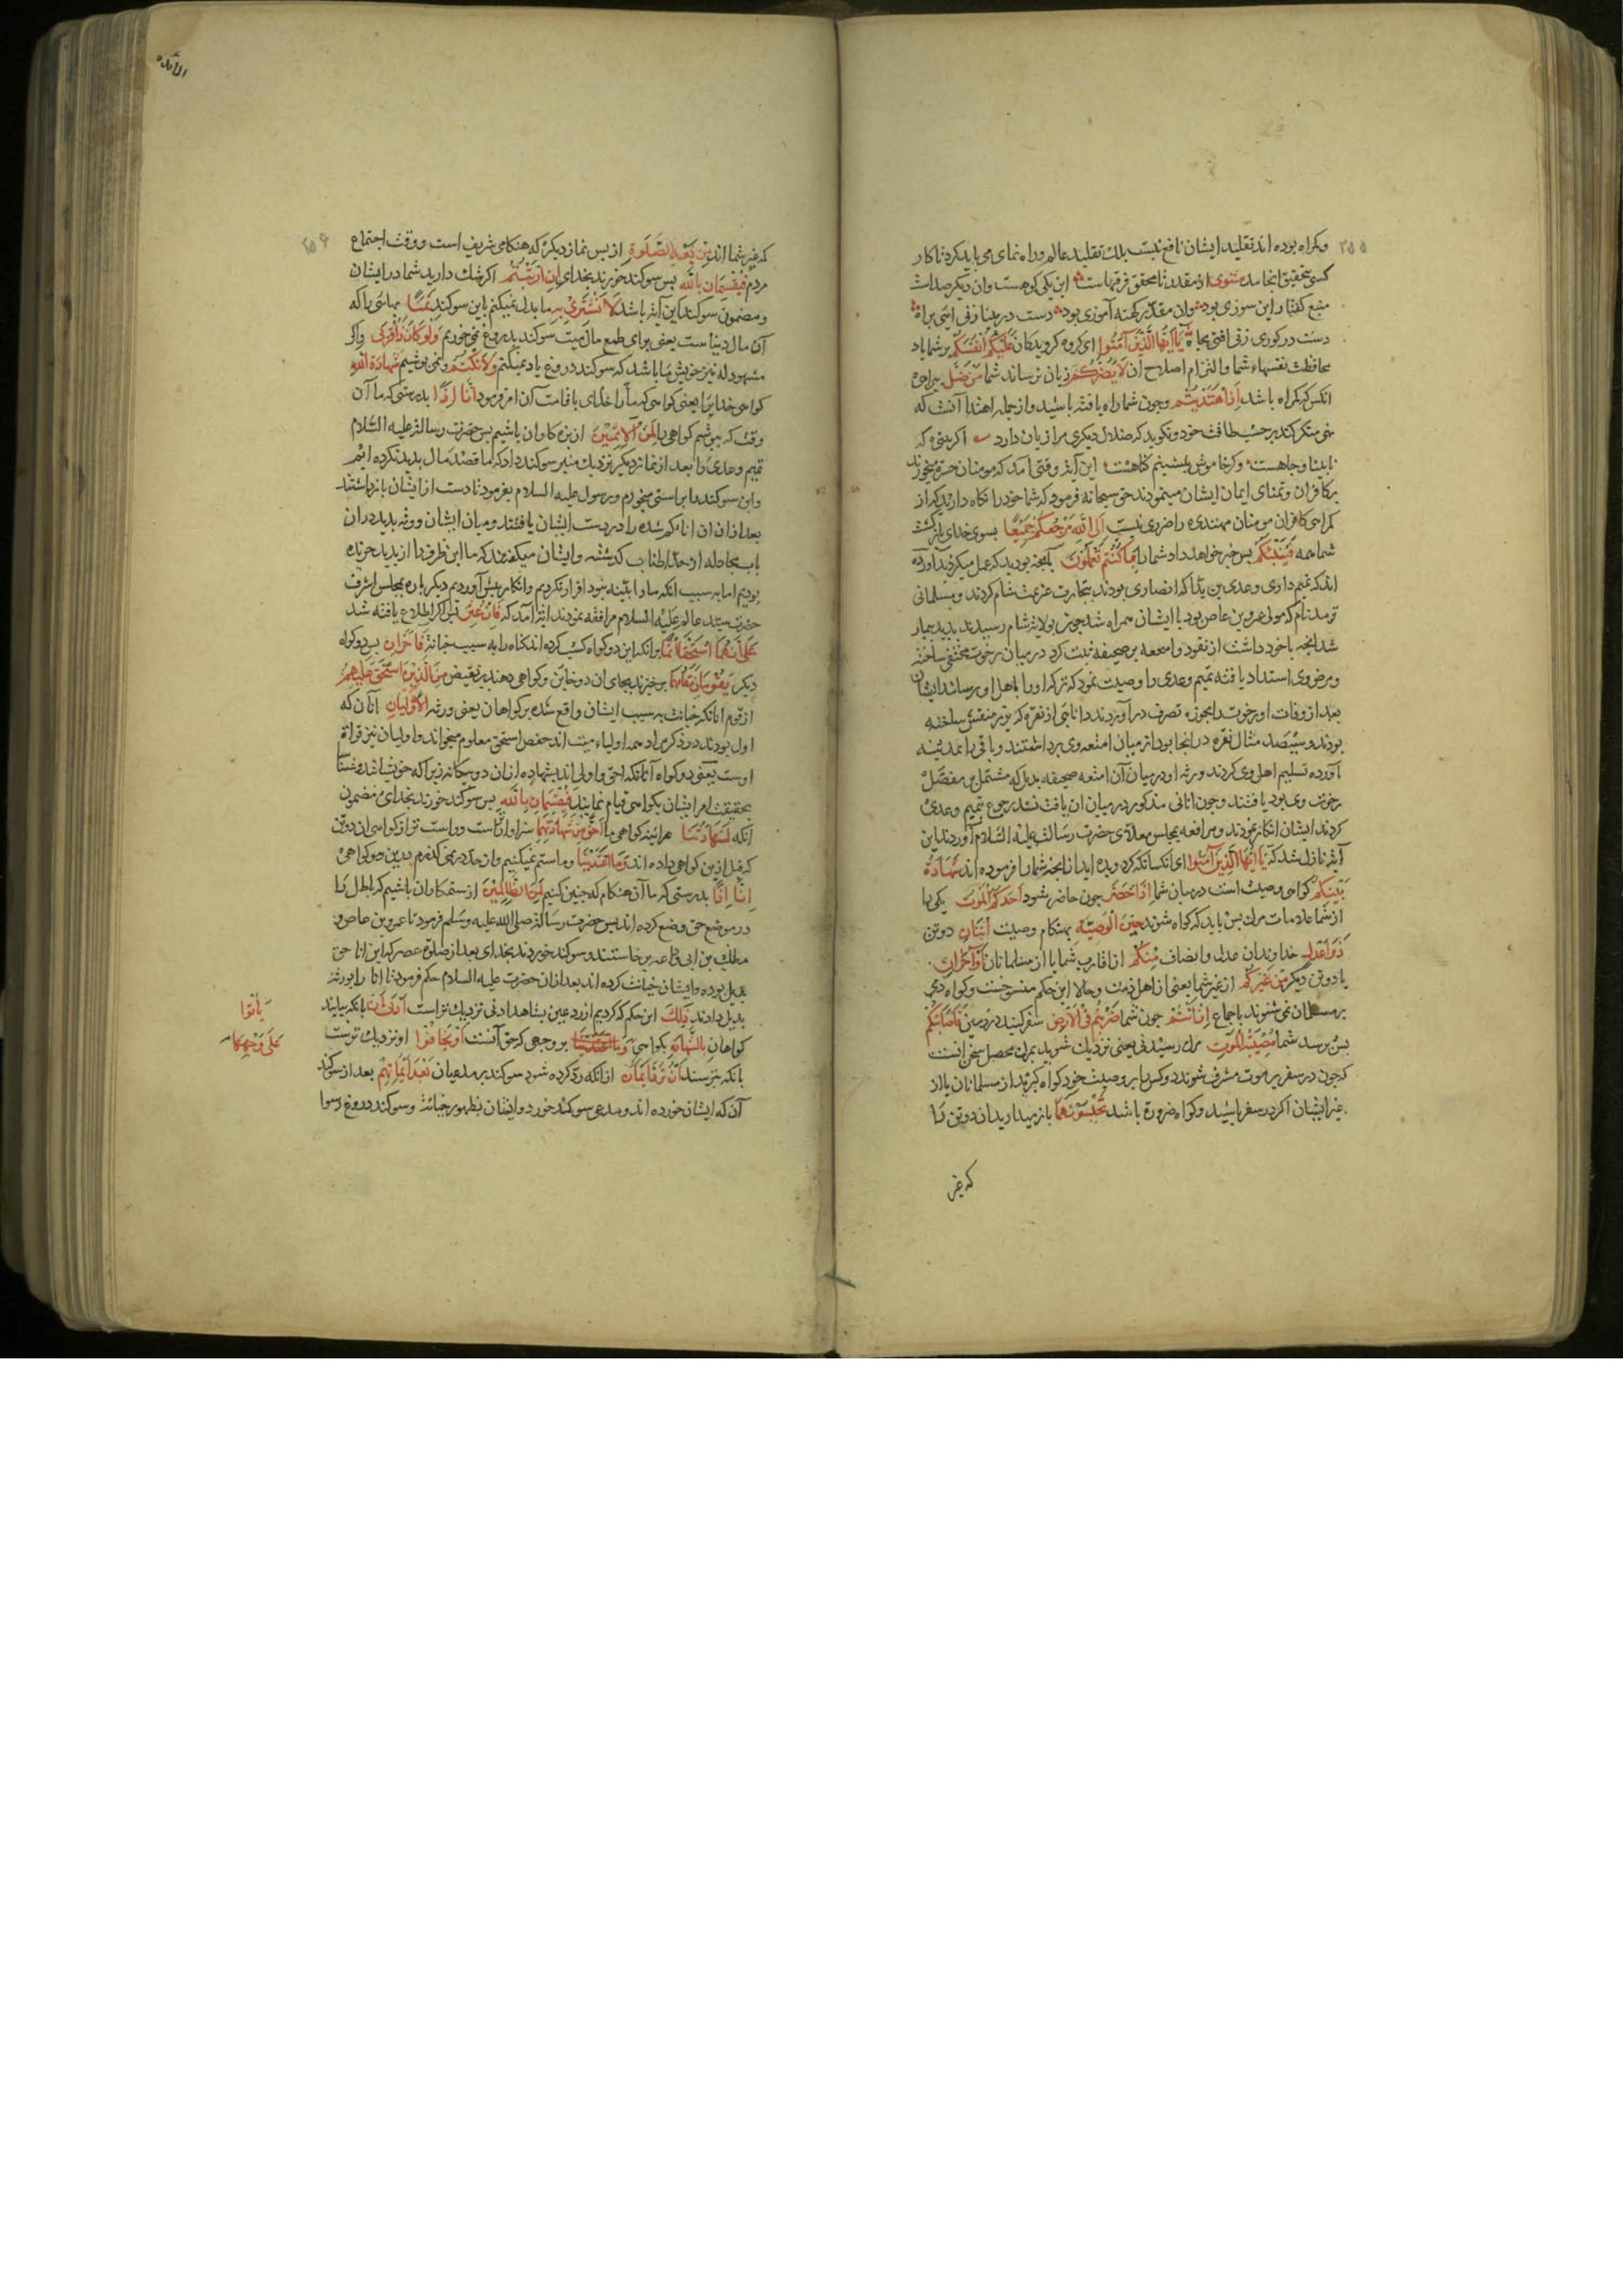 ۲۵۵
وکمراه بوده اند تقلید ایشان نافع نیست بلک تقلید عالم وراه نمای می باید کرد تا کار
کسی بتحقیق انجامد مثنوی از مقلد تا محقق فرقهاست این یکی کوهست وان دیکر صداست
منبع کفتار این سوزی بود وان مقلد کهنه آموزی بود دست در بینا زنی ایی براه
دست در کوری زنی افتی بچاه یَا اَیُّهَا الَّذِینَ آمَنُوا ای کروه کرویدکان عَلَیْکُمْ اَنْفُسَکُمْ بر شما باد
محافظت نفسهاء شما والتزام اصلاح ان لَا یَضُرُّکُمْ زیان نرساند شما مَنْ ضَلَّ بیراهی
انکس که کمراه باشد اِذَا هْتَدَیْتُمْ وجون شما راه یافته باشید واز جمله راهتدا آنست که
نهی منکر کند بر حسب طاقت خود ونکوید که ضلال دیکری مرا زیان دارد اکر بینی که
نابینا وجاهست وکر خاموش بنشینم کناهست این آیه وقتی آمد که مومنان حسرة میخوردند
بر کافران وتمنای ایمان ایشان مینمودند حق سبحانه فرمود که شما خود را نکاه دارید که از
کمراهی کافران مومنان مهتدی را ضرری نیست اِلَی اللهِ مَرْجِعُکُمْ جَمِیْعًا بسوی خدای بازکشت
شما همه فَیُنَبِّئُکُمْ بس خبر خواهد داد شما را بِمَا کُنْتُمْ تَعْمَلُوْنَ بآنجه بودید که عمل میکردید آورده
اند که تمیم داری وعدی بن بدّا که انصاری بودند بتجارت عزیمت شام کردند ومسلمانی
نام که مولی عمرو بن عاص بود با ایشان همراه شد جون بولایت شام رسیدند بدیل بیمار
شد انجه با خود داشت از نقود وامتعه بر صحیفه ثبت کرد در میان رخوت مختفی ساخته
ومرض وی استداد یافته تمیم وعدی را وصیت نمود که ترکه او را باهل او رسانند ایشان
بعد از وفات او رخوت را بحوزه تصرف در آوردند انائی از نقره که بزر منقش ساخته
بودند وسیصد مثقال نقره در انجا بود از میان امتعه وی برداشتند وباقی را بمدینه
آورده تسلیم اهل وی کردند ورثه او در میان آن امتعه صحیفه بدیل که مشتمل بر مفصّل
رخوت وی بود یافتند وجون انائی مذکور در میان ان یافت نشد رجوع بتمیم وعدی
کردند ایشان انکار نمودند ومرافعه بمجلس معلای حضرت رسالت علیه السّلام آوردند این
آیة نازل شد که یَا اَیُّهَا الَّذِیْنَ آمَنُوا ای انکسانکه کرویده اید از انجه شما را فرموده اند شَهَادَةُ
بَیْنِکُمْ کواهی وصیت است در میان شما اِذَا حَضَرَ جون حاضر شود اَحَدَکُمُ الْمَوْتُ یکی را
از شما علامات مرك بس باید که کواه شوند حِیْنَ الْوَصِیَّةِ بهنکام وصیت اثْنَانِ دو تن
ذَوَا عَدْلٍ خداوندان عدل وانصاف مِّنْکُمْ از اقارب شما یا از مسلمانان اَوْ آخَرَانِ
یا دو تن دیکر مِنْ غَیْرِکُمْ از غیر شما یعنی از اهل ذمت وحالا این حکم منسوخست وکواه ذمی
بر مسلمان نمی شنوند باجماع اِنْ اَنْتُمْ جون شما ضَرَبْتُمْ فِی الْاَرْضِ سفر کنید در زمین فَاَصَابَتْکُمْ
بس برسد شما مُصِیْبَةُ الْمَوْتِ مرك رسیدنی یعنی نزدیك شوید بمرك محصل سخن انست
که جون در سفر بر موت مشرف شوند دو کس را بر وصیت خود کواه کیرید از مسلمانان یا از
غیر ایشان اکر در سفر باشید وکواه ضرورة باشد تَحْبِسُوْنَهُمَا باز میدارید ان دو تن را
که غیر
المائده
۲۵۶
که غیر شما اند مِنْ بَعْدِ الصَّلَوةِ از بس نماز دیکر که هنکامی شریف است ووقت اجتماع
مردم فَیُقْسِمَانِ بِاللهِ بس سوکند خورند بخدای اِنِ ارْتَبْتُمْ اکر شك دارید شما در ایشان
ومضمون سوکند این آیة باشد لَا نَشْتَرِیْ بِهِ ما بدل نمیکنم باین سوکند ثَمَنًا بهائی را که
آن مال دنیا ست یعنی برای طمع مال میت سوکند بدروغ نمی خوریم وَلَوْ کَانَ ذَا قُرْبَی واکر
مشهود له نیز خویش ما باشد که سوکند دروغ یاد نمیکنم وَلَا نَکْتُمُ ونمی بوشیم شَهَادَةَ اللهِ
کواهی خدایرا یعنی کواهی که ما را خدای باقامت آن امر فرمود اِنَّا اِذًا بدرستی که ما آن
وقت که ببوشیم کواهی را لَمِنَ الْآثِمِیْنَ از بزه کاران باشیم بس حضرت رسالة علیه السّلام
تمیم وعدی را بعد از نماز دیکر نزدیك منبر سوکند داد که ما قصد مال بدیل نکرده ایم
واین سوکند را براستی میخوریم ورسول علیه السلام بفرمود تا دست از ایشان بازداشتند
بعد از ان ان اناء کم شده را در دست ایشان یافتند ومیان ایشان وورثه بدیل در ان
باب مجادله از حدّ اطناب کدشته وایشان میکفتند که ما این ظرف را از بدیل خریده
بودیم اما به سبب انکه ما را بیّنه نبود اقرار نکردیم وانکار بیش آوردیم دیکر باره بمجلس اشرف
حضرت سید عالم علیه السلام مرافعه نمودند ایة آمد که فَاِنْ عُثِرَ بس اکر اطلاع یافته شد
عَلَی اَنَّهُمَا اسْتَحَقَّا اِثْمًا بر انکه این دو کواه کسب کرده اند کناه را به سبب خیانت فَآخَرَانِ بس دو کواه
دیکر یَقُوْمَانِ مَقَامَهُمَا برخیزند بجای ان دو خاین وکواهی دهند بر نقیض مِنَ الَّذِیْنَ اسْتَحَقَّ عَلَیْهِمُ
از قوم انانکه خیانت به سبب ایشان واقع شده بر کواهان یعنی ورثه الْاَوْلَیَانِ آنان که
اول بودند در ذکر مراد همه اولیاء میت اند حفص استحق معلوم میخواند واولیان نیز قراة
اوست یعنی دو کواه آنانکه احق واولی اند بشهاده ازان دو بیکانه زیرا که خویشا شد
بحقیقت امر ایشان بکواهی قیام نمایند فَیُقْسِمَانِ بِاللهِ بس سوکند خورند بخدای مضمون
آنکه لَشَهَادَتُنَا هرآینه کواهی ما اَحَقُّ مِنْ شَهَادَتِهِمَا سزاوارتر است وراست تر از کواهی ان دو تن
که قبل ازین کواهی داده اند وَمَا اعْتَدَیْنَا وما ستم نمیکنیم واز حد در نمی کذرم بدین کواهی
اِنَّا اِذًا بدرستی که ما آن هنکام که جنین کنیم لَمِنَ الظَّالِمِیْنَ از ستمکاران باشیم که باطل را
در موضع حق وضع کرده اند بس حضرت رسالة صلی الله علیه وسلم فرمود تا عمرو بن عاص و
مطلب بن ابی وداعه برخاستند وسوکند خوردند بخدای بعد از صلوة عصر که این انا حق
بدیل بوده وایشان خیانت کرده اند بعد ازان حضرت علیه السلام حکم فرمود تا انا را بورثه
بدیل دادند ذَلِكَ این حکم که کردیم از رد عین بشاهد اَدْنَی نزدیك تر است اَنْ بانکه بیایند
یَأْتُوا
کواهان بِالشَّهَادَةِ بکواهی بر وجهی که حق آنست اَوْ یَخَافُوْا او نزدیك ترست
عَلَی وَجْهِهَا
بانکه بترسند اَنْ تُرَدَّ اَیْمَانٌ از انکه رد کرده شود سوکند بر مدعیان بَعْدَ اَیْمَانِهِمْ بعد از سوکند
آن که ایشان خورده اند ومدعی سوکند خورد وایشان بظهور خیانت وسوکند دروغ رسوا